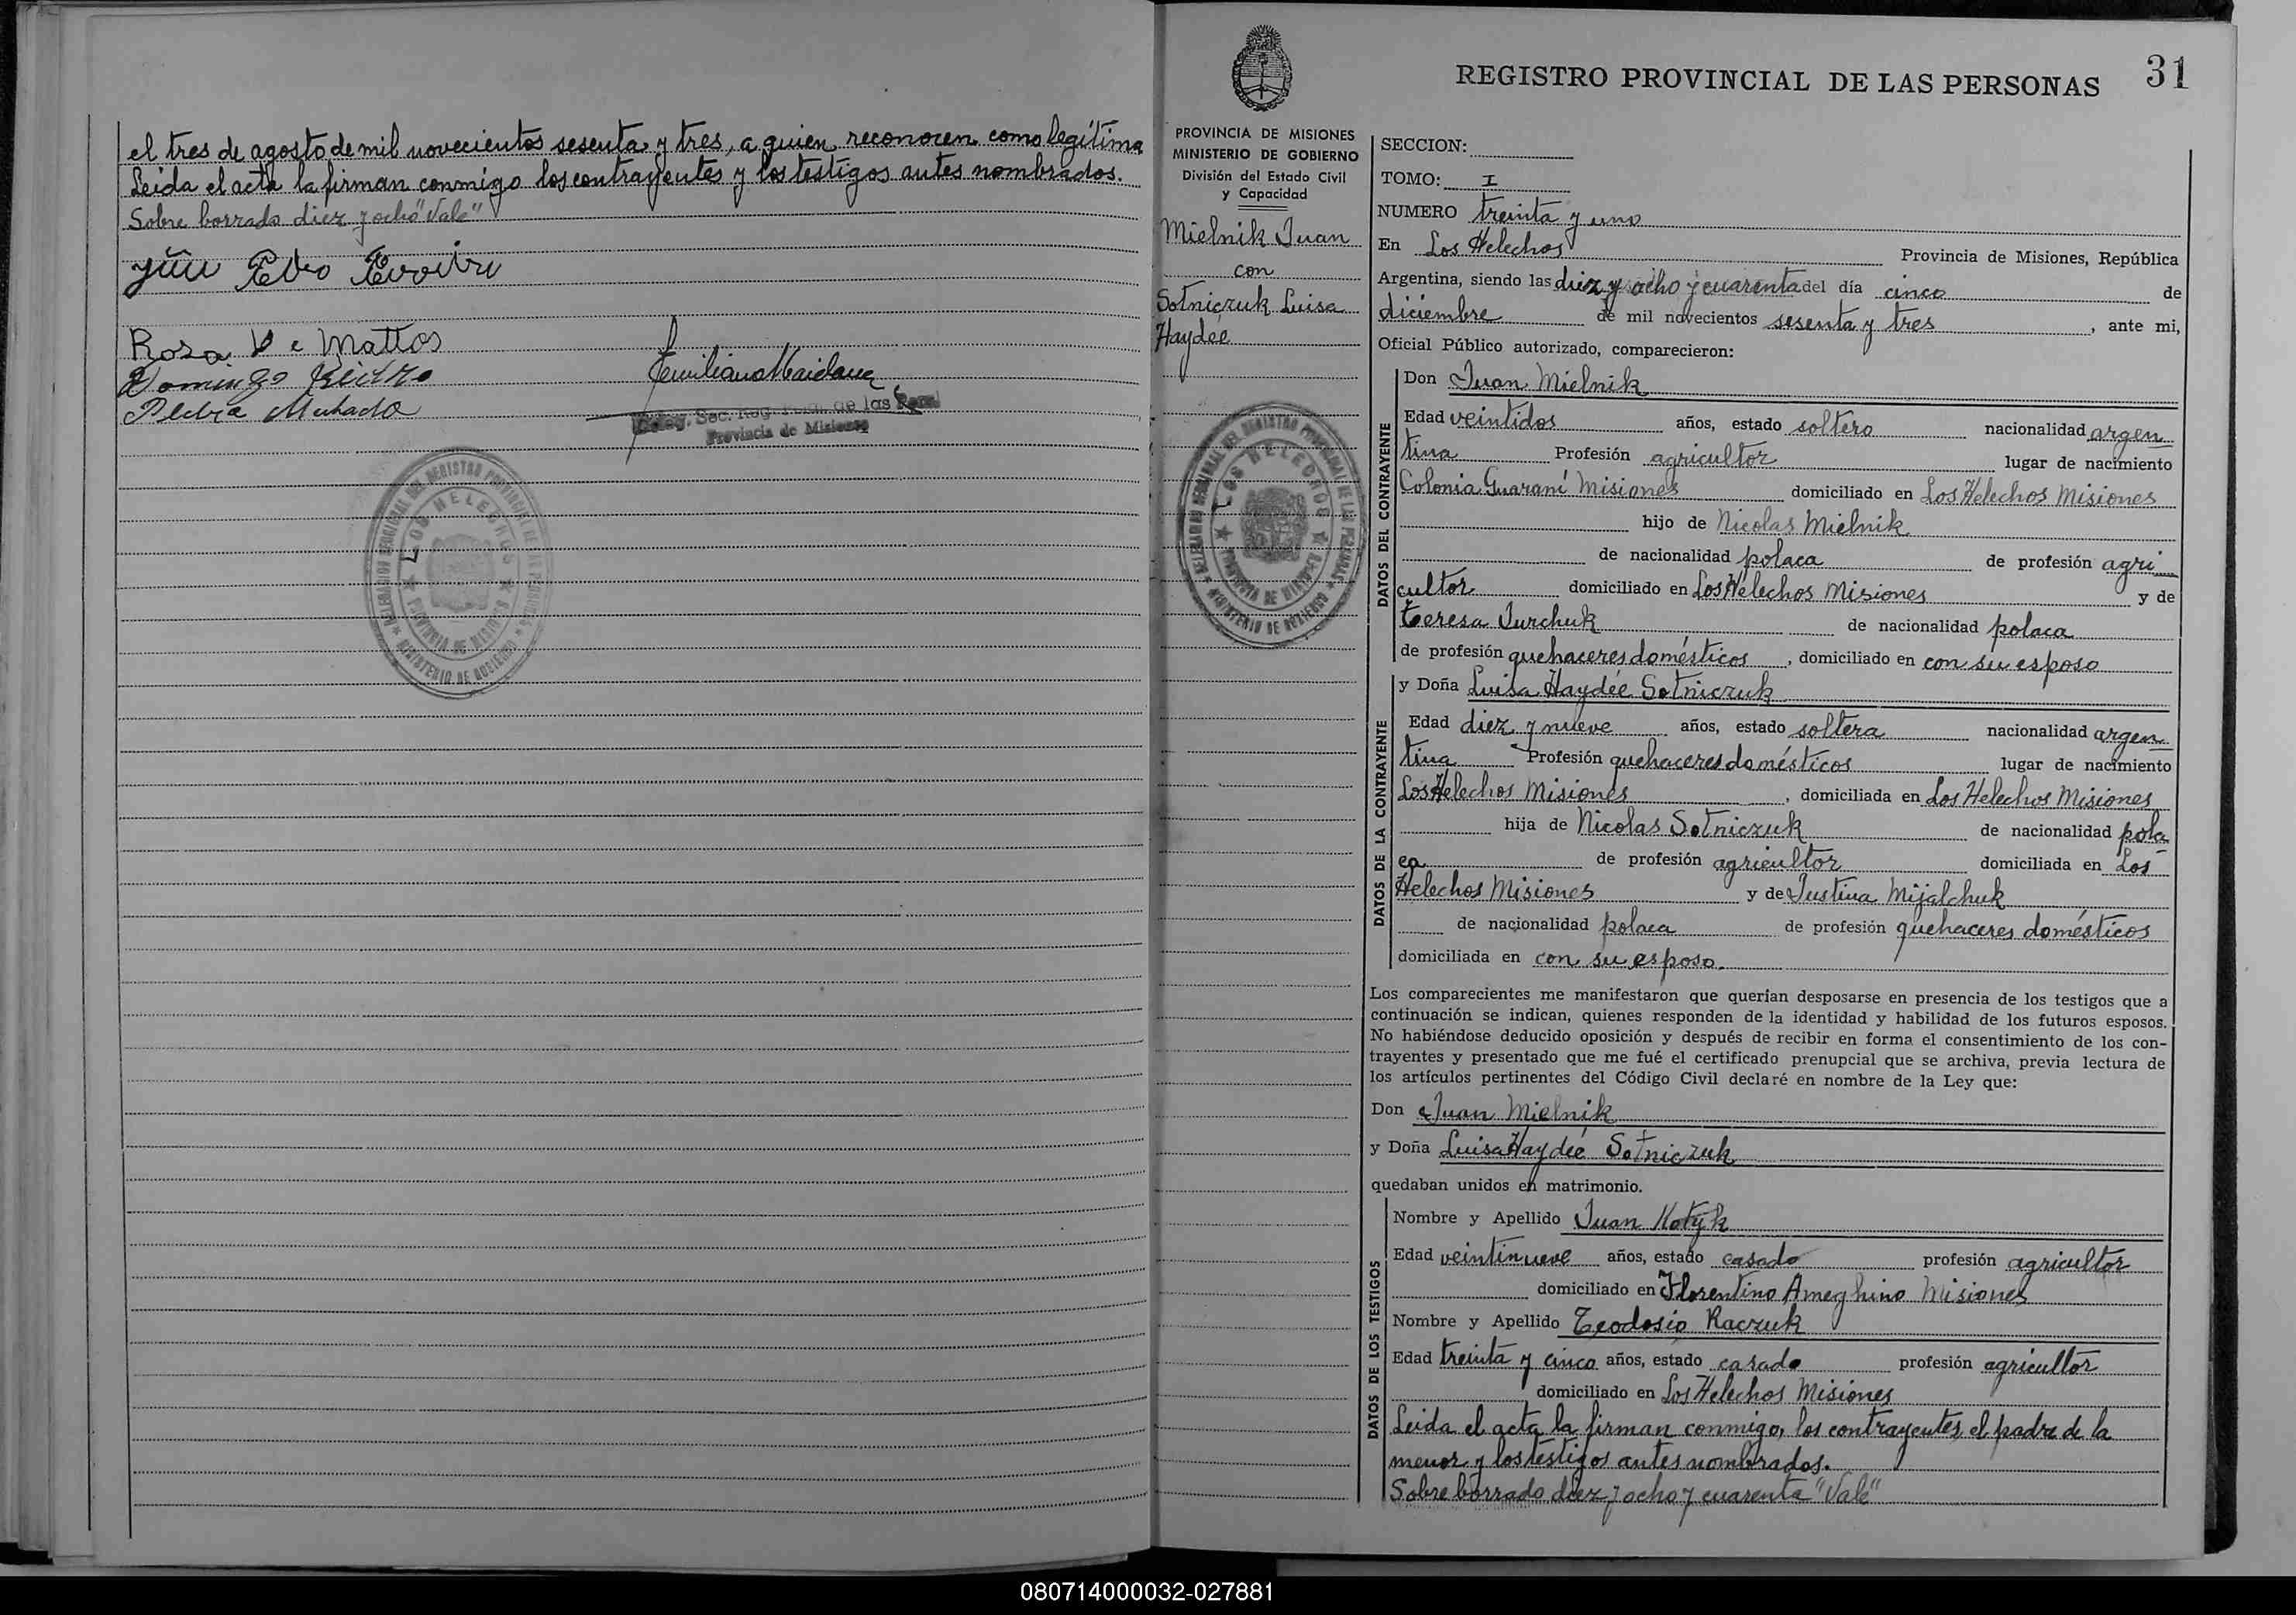 el tres de agosto de mil novecientos sesenta y tres, a quien reconocen como legítima
Leida el acta la firman conmigo los contrayentes y los testigos antes nombrados.
Sobre borrado diez y ocho "Vale"
Rosa De Mattos
Domingo
Provincia de Misiones
LOS HELECHOS
31
REGISTRO PROVINCIAL DE LAS PERSONAS
PROVINCIA DE MISIONES
MINISTERIO DE GOBIERNO
División del Estado Civil
y Capacidad
Mielnik Juan
con
Sotniczuk Luisa
Haydée
LOS HELECHOS
SECCION:
TOMO: I
NUMERO treinta y uno
En Los Helechos Provincia de Misiones, República
Argentina, siendo las diez y ocho y cuarenta del día cinco de
diciembre de mil novecientos sesenta y tres, ante mi,
Oficial Público autorizado, comparecieron:
DATOS DEL CONTRAYENTE
Don Juan Mielnik
Edad veintidos años, estado soltero nacionalidad argen
tina Profesión agricultor lugar de nacimiento
Colonia Guaraní Misiones domiciliado en Los Helechos Misiones
hijo de Nicolas Mielnik
de nacionalidad polaca de profesión agri
cultor domiciliado en Los Helechos Misiones y de
Teresa Jurchuk de nacionalidad polaca
de profesión quehaceres domésticos, domiciliado en con su esposo
DATOS DE LA CONTRAYENTE
y Doña Luisa Haydée Sotniczuk
Edad diez y nueve años, estado soltera nacionalidad argen
tina Profesión quehaceres domésticos lugar de nacimiento
Los Helechos Misiones, domiciliada en Los Helechos Misiones
hija de Nicolas Sotniczuk de nacionalidad pola
ca de profesión agricultor domiciliada en Los
Helechos Misiones y de Justina Mijalchuk
de nacionalidad polaca de profesión quehaceres domésticos
domiciliada en con su esposo.
Los comparecientes me manifestaron que querían desposarse en presencia de los testigos que a
continuación se indican, quienes responden de la identidad y habilidad de los futuros esposos.
No habiéndose deducido oposición y después de recibir en forma el consentimiento de los con-
trayentes y presentado que me fué el certificado prenupcial que se archiva, previa lectura de
los artículos pertinentes del Código Civil declaré en nombre de la Ley que:
Don Juan Mielnik
y Doña Luisa Haydée Sotniczuk
quedaban unidos en matrimonio.
DATOS DE LOS TESTIGOS
Nombre y Apellido Juan Kotyk
Edad veintinueve años, estado casado profesión agricultor
domiciliado en Florentino Ameghino Misiones
Nombre y Apellido Teodosio Raczuk
Edad treinta y cinco años, estado casado profesión agricultor
domiciliado en Los Helechos Misiones
Leida el acta la firman conmigo, los contrayentes, el padre de la
menor y los testigos antes nombrados.
Sobre borrado diez y ocho y cuarenta "Vale"
080714000032-027881